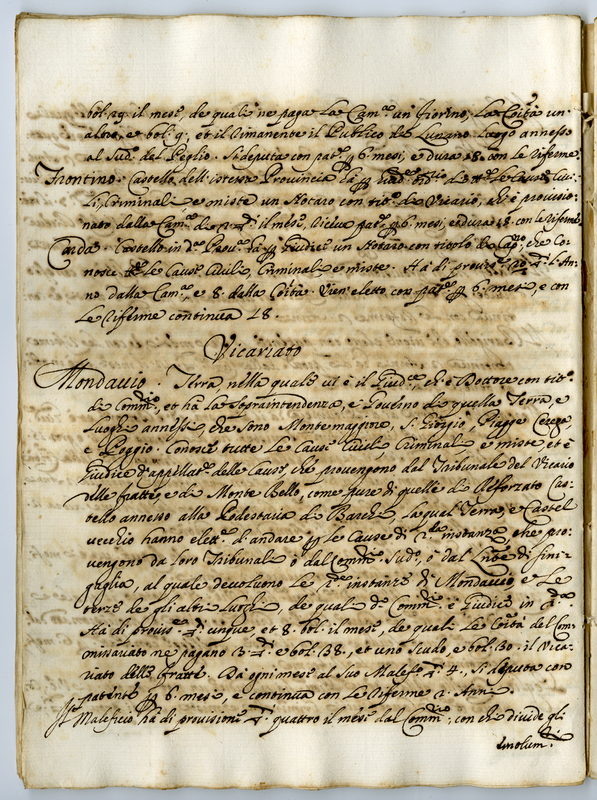 bol. 29. il mese, de quali ne paga la Cam.ª un fiorino, la Co͂ità un'
altro, e bol. 9., et il rimanente il Publico del Lunano luogo annesso
al Sud.º dal Peglio. Si deputa con pat.ᵉ p 6. mesi, e dura 18. con le Riferme.
Frontino. Castello dell'istessa Provincia hà p Giud.ᵉ di tt.ᵉ le Cause Civi-
li, Criminali e miste un Notaro con tit.º di Vicario, ch'è provisio-
nato dalla Cam.ª di il mese, pat.ᵉ p 6. mesi, e dura 18. con le riferme
Carda. Castello in d.ª Prov.ª hà p Giudice un Notaro con titolo di Cap.º, che Co-
nosce tt.ᵉ le Cause Civili, Criminali e miste. Hà di provis.ᵉ 20 l'An-
no dalla Cam.ª, e 8. dalla Co͂ità. Vien' eletto con pat.ᵉ p 6. mesi, e con
le riferme continua 18.
Vicariato
Mondavio. Terra nella quale vi è il Giud.ᵉ, ch'è Dottore con tit.º
di Com͂.º, et hà la Sopraintendenza, e Governo di quella Terra, e
luoghi annessi che sono Montemaggiore, S. Giorgio, Piagge Cerasa,
e Poggio. Conosce tutte le Cause Civili, Criminali e miste et è
Giudice d'appellat.ᵉ delle Cause, che provengono dal Tribunale del Vicario
delle fratte, e di Monte Bello, come pure di quelle di Reforzato Cas-
tello annesso alla Podestaria di Barchi la qual Terra, e Castel
vecchio hanno elett.ᵉ d'andare p le Cause di 2.ª instanza, che pro-
vengono da loro Tribunali ò dal Com͂.º Sud.º, ò dal Luog.ᵗᵉ di Sini-
gaglia, al quale devolvono le 2.ᵉ instanze di Mondavio e le
terze de gli altri luoghi, de quali d.º Com͂.º è Giudice in 2.ª
Hà di provis.ᵉ cinque et 8. bol. il mese, de quali le Co͂ità del Com-
missariato ne pagano 3. e bol. 38., et uno scudo, e bol. 30. il Vica-
riato delle fratte. Dà ogni mese al Suo Malef.º 4. Si deputa con
patente p 6. mesi, e continua con le riferme 2. Anni.
Il Maleficio hà di provisione quattro il mese dal Com͂.º, con che divide gli
emolum.ᵗⁱ